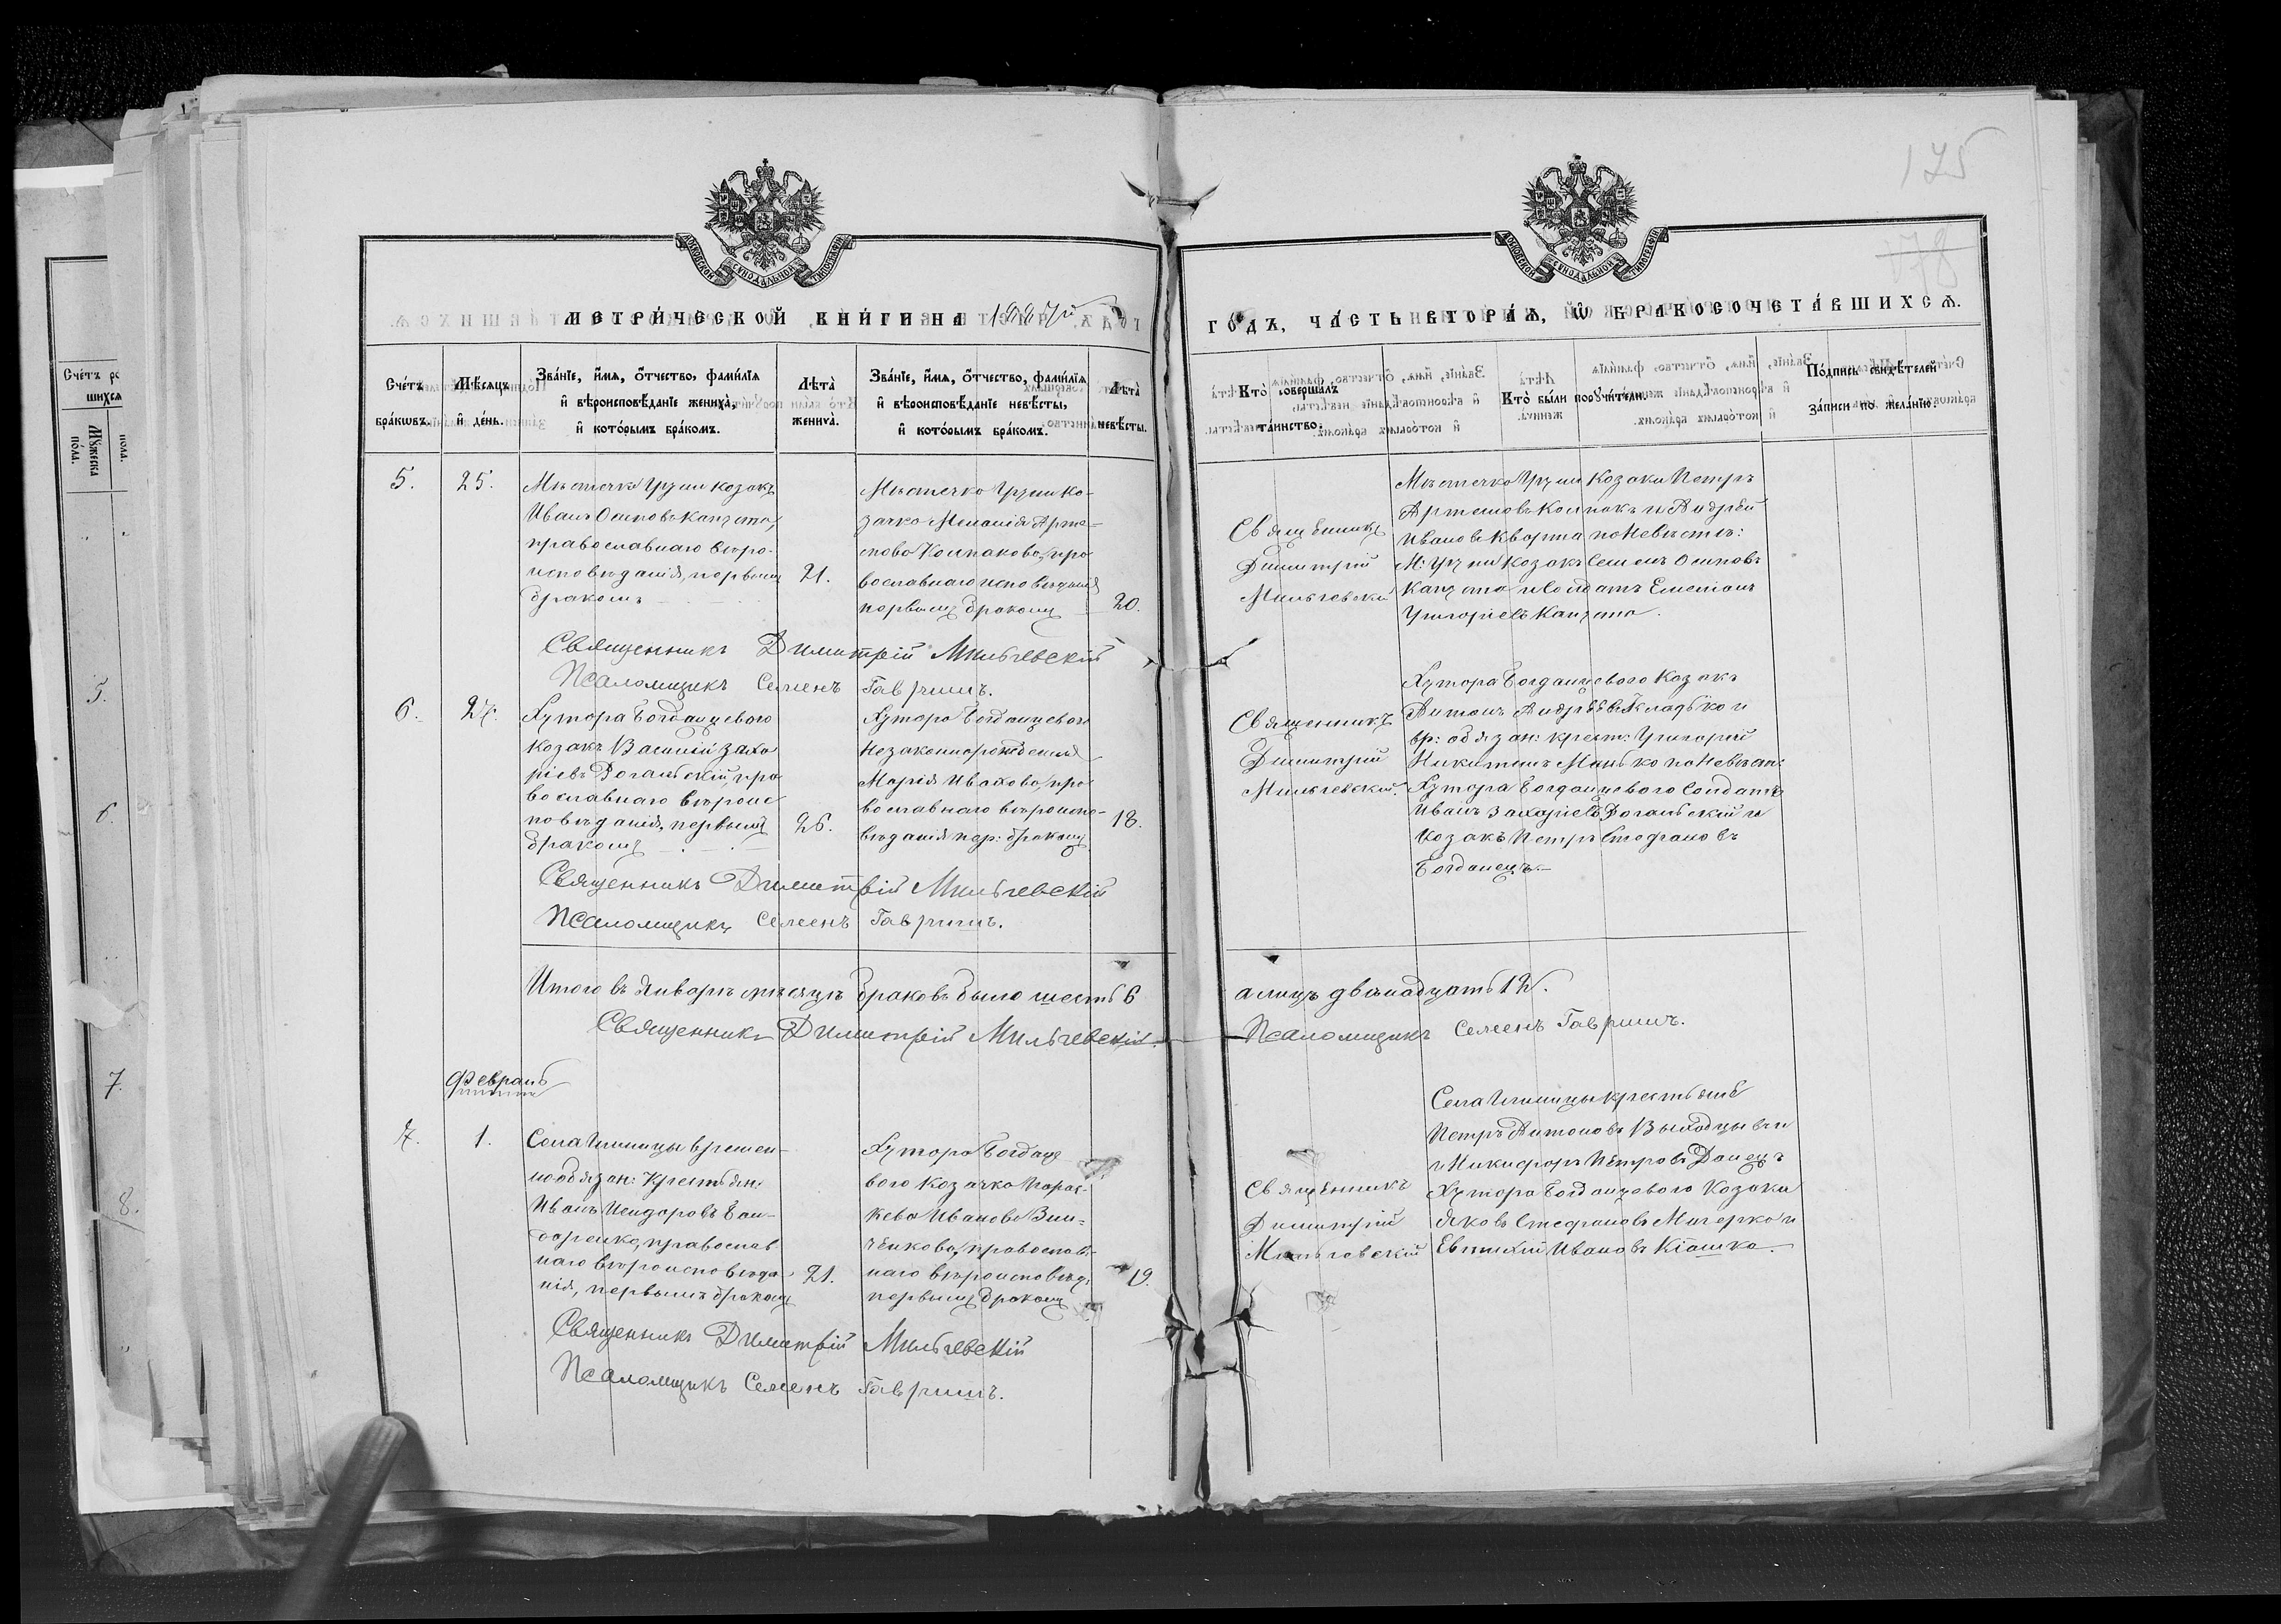 175
178
МОСКОВСКОЙ СѴНОДАЛЬНОЙ ТИПОГРАФІИ
МОСКОВСКОЙ СѴНОДАЛЬНОЙ ТИПОГРАФІИ
МЕТРИ́ЧЕСКОЙ КНИ́ГИ НА 1887й
ГО́ДЪ, ЧА́СТЬ ВТОРА́Ѧ, Ѽ БРАКОСОЧЕТА́ВШИХСѦ.
Сче́тъ бра́кѡвъ.
Мѣ́сѧцъ и҆ де́нь.
Зва́нїе, и҆́мѧ, ѻ҆́тчество, фами́лїѧ и҆ вѣроисповѣ́данїе жениха̀, и҆ кото́рымъ бра́комъ.
Лѣта̀ жениха̀.
Зва́нїе, и҆́мѧ, ѻ҆́тчество, фами́лїѧ и҆ вѣроисповѣ́данїе невѣ́сты, и҆ кото́рымъ бра́комъ.
Лѣта̀ невѣ́сты.
Кто̀ соверша́лъ та́инство.
Кто̀ бы́ли порꙋчи́тели.
По́дпись свидѣ́телей за́писи по жела́нїю.
5.
25.
Мѣстечка Груни козакъ
Иванъ Осиповъ Капуста,
православнаго вѣро-
исповѣданія, первымъ
бракомъ
21.
Мѣстечка Груни ко-
зачка Меланія Арте-
мова Колпакова, пра
вославнаго исповѣданія
первымъ бракомъ
20.
Священникъ
Димитрій
Мильчевскій
Мѣстечка Груни Козаки Петръ
Артемовъ Колпакъ и Андрей
Ивановъ Кварта по Невѣстѣ:
М: Груни Козакъ Семенъ Осиповъ
Капуста и Солдатъ Емеліанъ
Григоріевъ Капуста.
Священникъ Димитрій Мильчевскій
Псаломщикъ Семенъ Гавришъ.
6.
27.
Хутора Богданцевого
козакъ Василій Заха
ріевъ Роганьскій, пра
вославнаго вѣроис
повѣданія, первымъ
бракомъ
26.
Хутора Богданцевого
Незаконнорожденная
Марія Ивахова, пра
вославнаго вѣроиспо-
вѣданія пер: бракомъ
18.
Священникъ
Димитрій
Мильчевскій.
Хутора Богданцевого Козакъ
Антонъ Андрѣевъ Кладько и
вр: обязан: крест: Григорій
Никитинъ Манько по Невѣст:
Хутора Богданцевого Солдатъ
Иванъ Захаріевъ Роганьскій и
Козакъ Петръ Стефановъ
Богданецъ.
Священникъ Димитрій Мильчевскій
Псаломщикъ Семенъ Гавришъ.
Итого въ Январѣ мѣсяцѣ браковъ было шесть 6
а лицъ дванадцать 12.
Священникъ Димитрій Мильчевскій.
Псаломщикъ Семенъ Гавришъ.
Февраль
7.
1.
Села временно
нообязан: Крестьян:
Иванъ Исидоровъ Бон-
даренко, православ
наго вѣроисповѣда
нія, первымъ бракомъ
21.
Хутора Богданце
вого козачка Парас-
кева Иванова Вин-
ченкова, православ-
наго вѣроисповѣд:
первымъ бракомъ
19.
Священникъ
Димитрій
Мильчевскій
Села крестьяне
Петръ Антоновъ и
и Никифоръ Петровъ Донецъ
Хутора Богданцевого Козаки
Яковъ Стефановъ и
Евтихій Ивановъ Кіашко.
Священникъ Димитрій Мильчевскій
Псаломщикъ Семенъ Гавришъ.
Сче́тъ
5.
6.
7.
8.